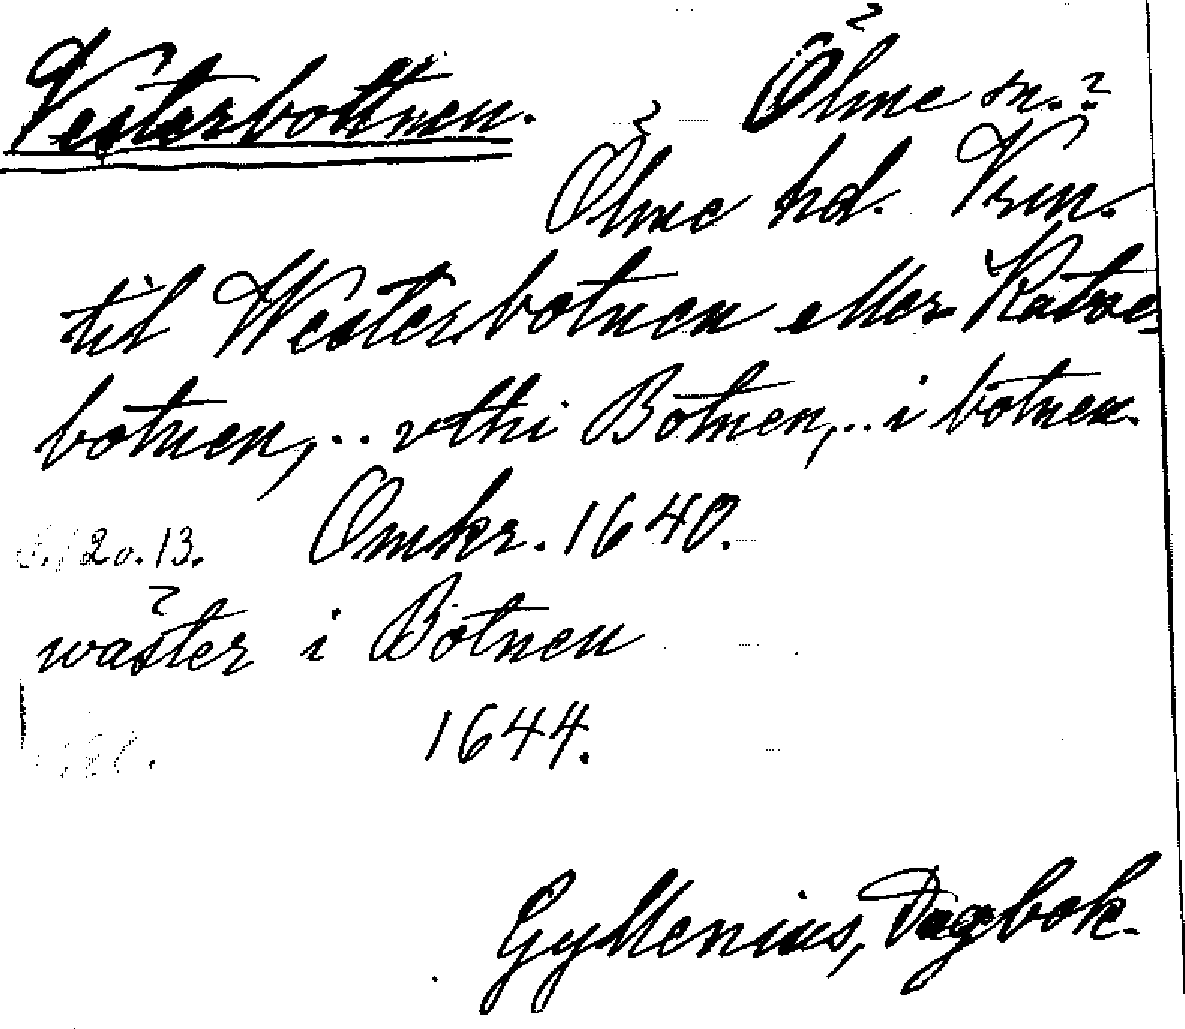 Vesterbottnen. Ölme sn.?
Ölme hd. Vrm.
til Westerbotnen eller Katre
botnen,.. vthi Botnen,.. i botnen.
12 o. 13. Omkr. 1640.
wäster i Botnen
1644.
Gyllenius, Dagbok.